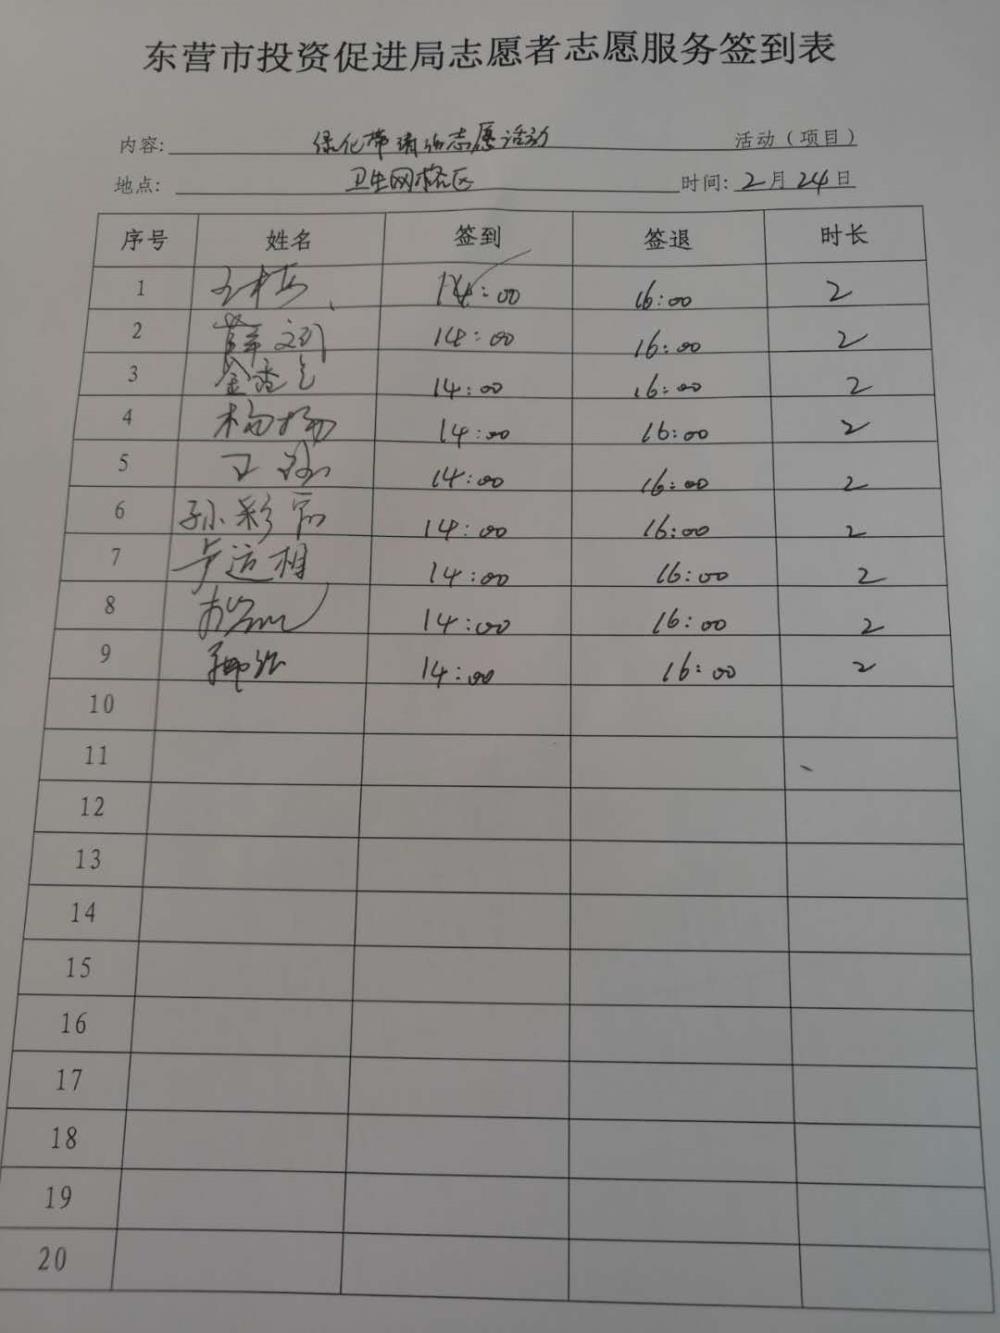 东营市投资促进局志愿者志愿服务签到表
内容: 绿化带清洁志愿活动 活动（项目）
地点: 卫生网格区 时间: 2月24日
序号 姓名 签到 签退 时长
1 14:00 16:00 2
2 14:00 16:00 2
3 14:00 16:00 2
4 杨扬 14:00 16:00 2
5 14:00 16:00 2
6 孙彩 14:00 16:00 2
7 卢运相 14:00 16:00 2
8 14:00 16:00 2
9 14:00 16:00 2
10
11
12
13
14
15
16
17
18
19
20